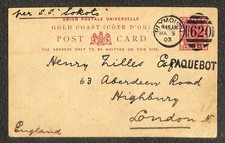 per S.S. "Sokoto"
UNION POSTALE UNIVERSELLE
GOLD COAST (CÔTE D'OR)
POST CARD
THE ADDRESS ONLY TO BE WRITTEN ON THIS SIDE.
PLYMOUTH
5
03
620
Henry Tilles Esq
PAQUEBOT
63 Aberdeen Road
Highbury
London N
England